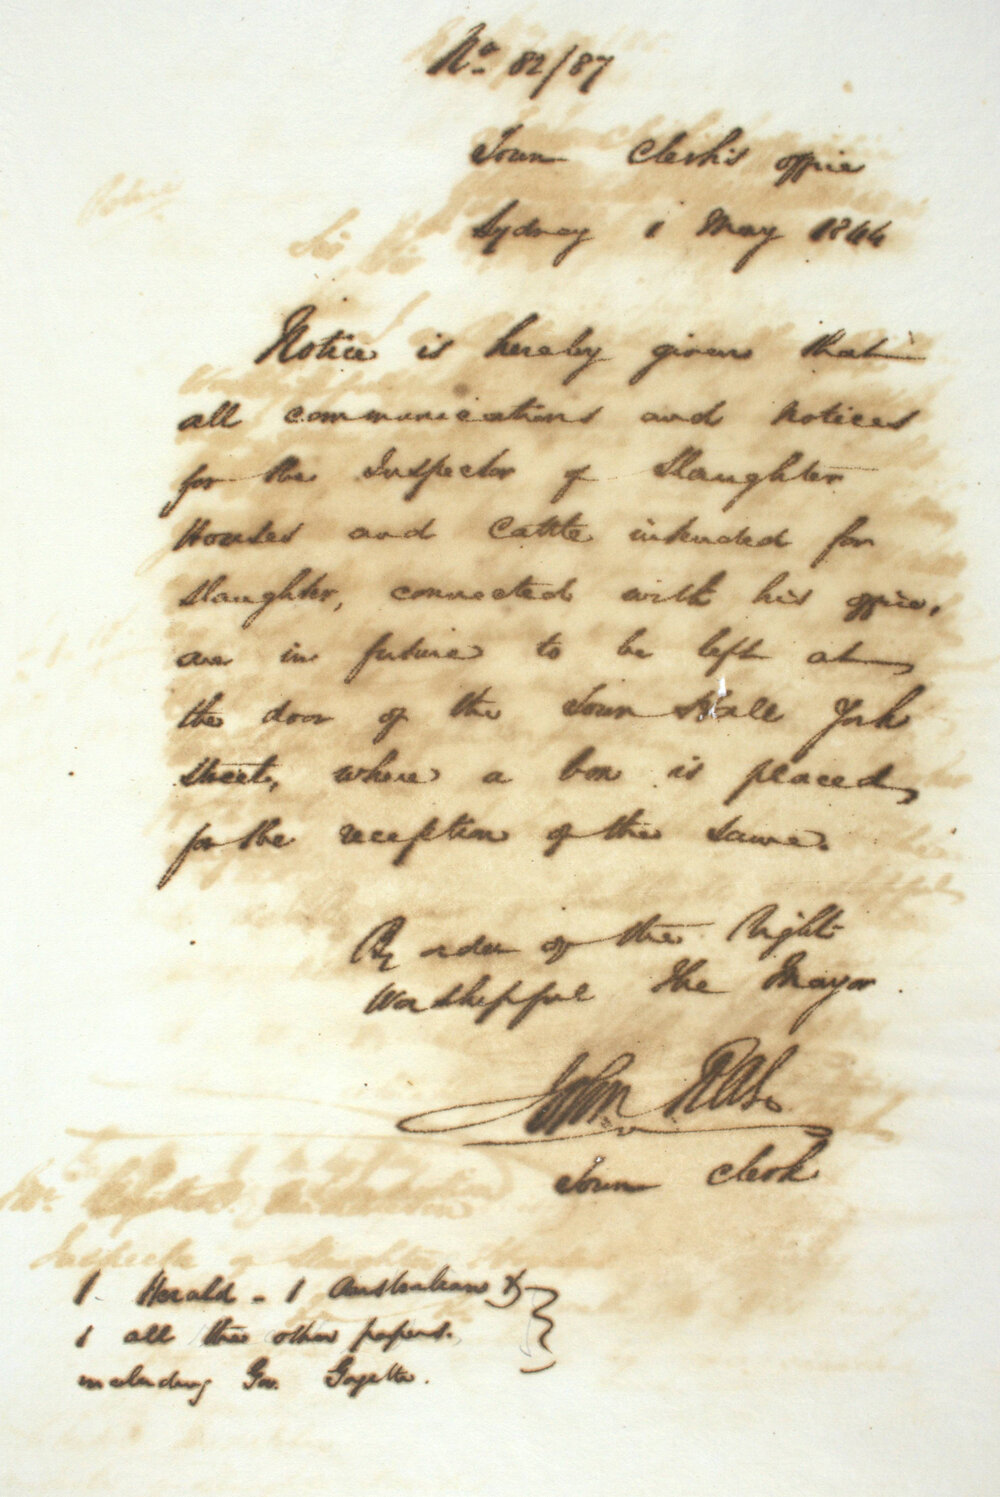 No. 82/87
Town Clerk's office
Sydney 1 May 1844
Notice is hereby given that
all communications and notices
for the Inspector of Slaughter
Houses and Cattle intended for
Slaughter, connected with his office,
are in future to be left at
the door of the Town Hall York
Street, where a box is placed
for the reception of the same.
By order of the Right
Worshipful the Mayor.
John
Town Clerk
Inspector of Slaughter Houses
1 Herald - 1 Australian &
1 all the other papers.
including Gov. Gazette.